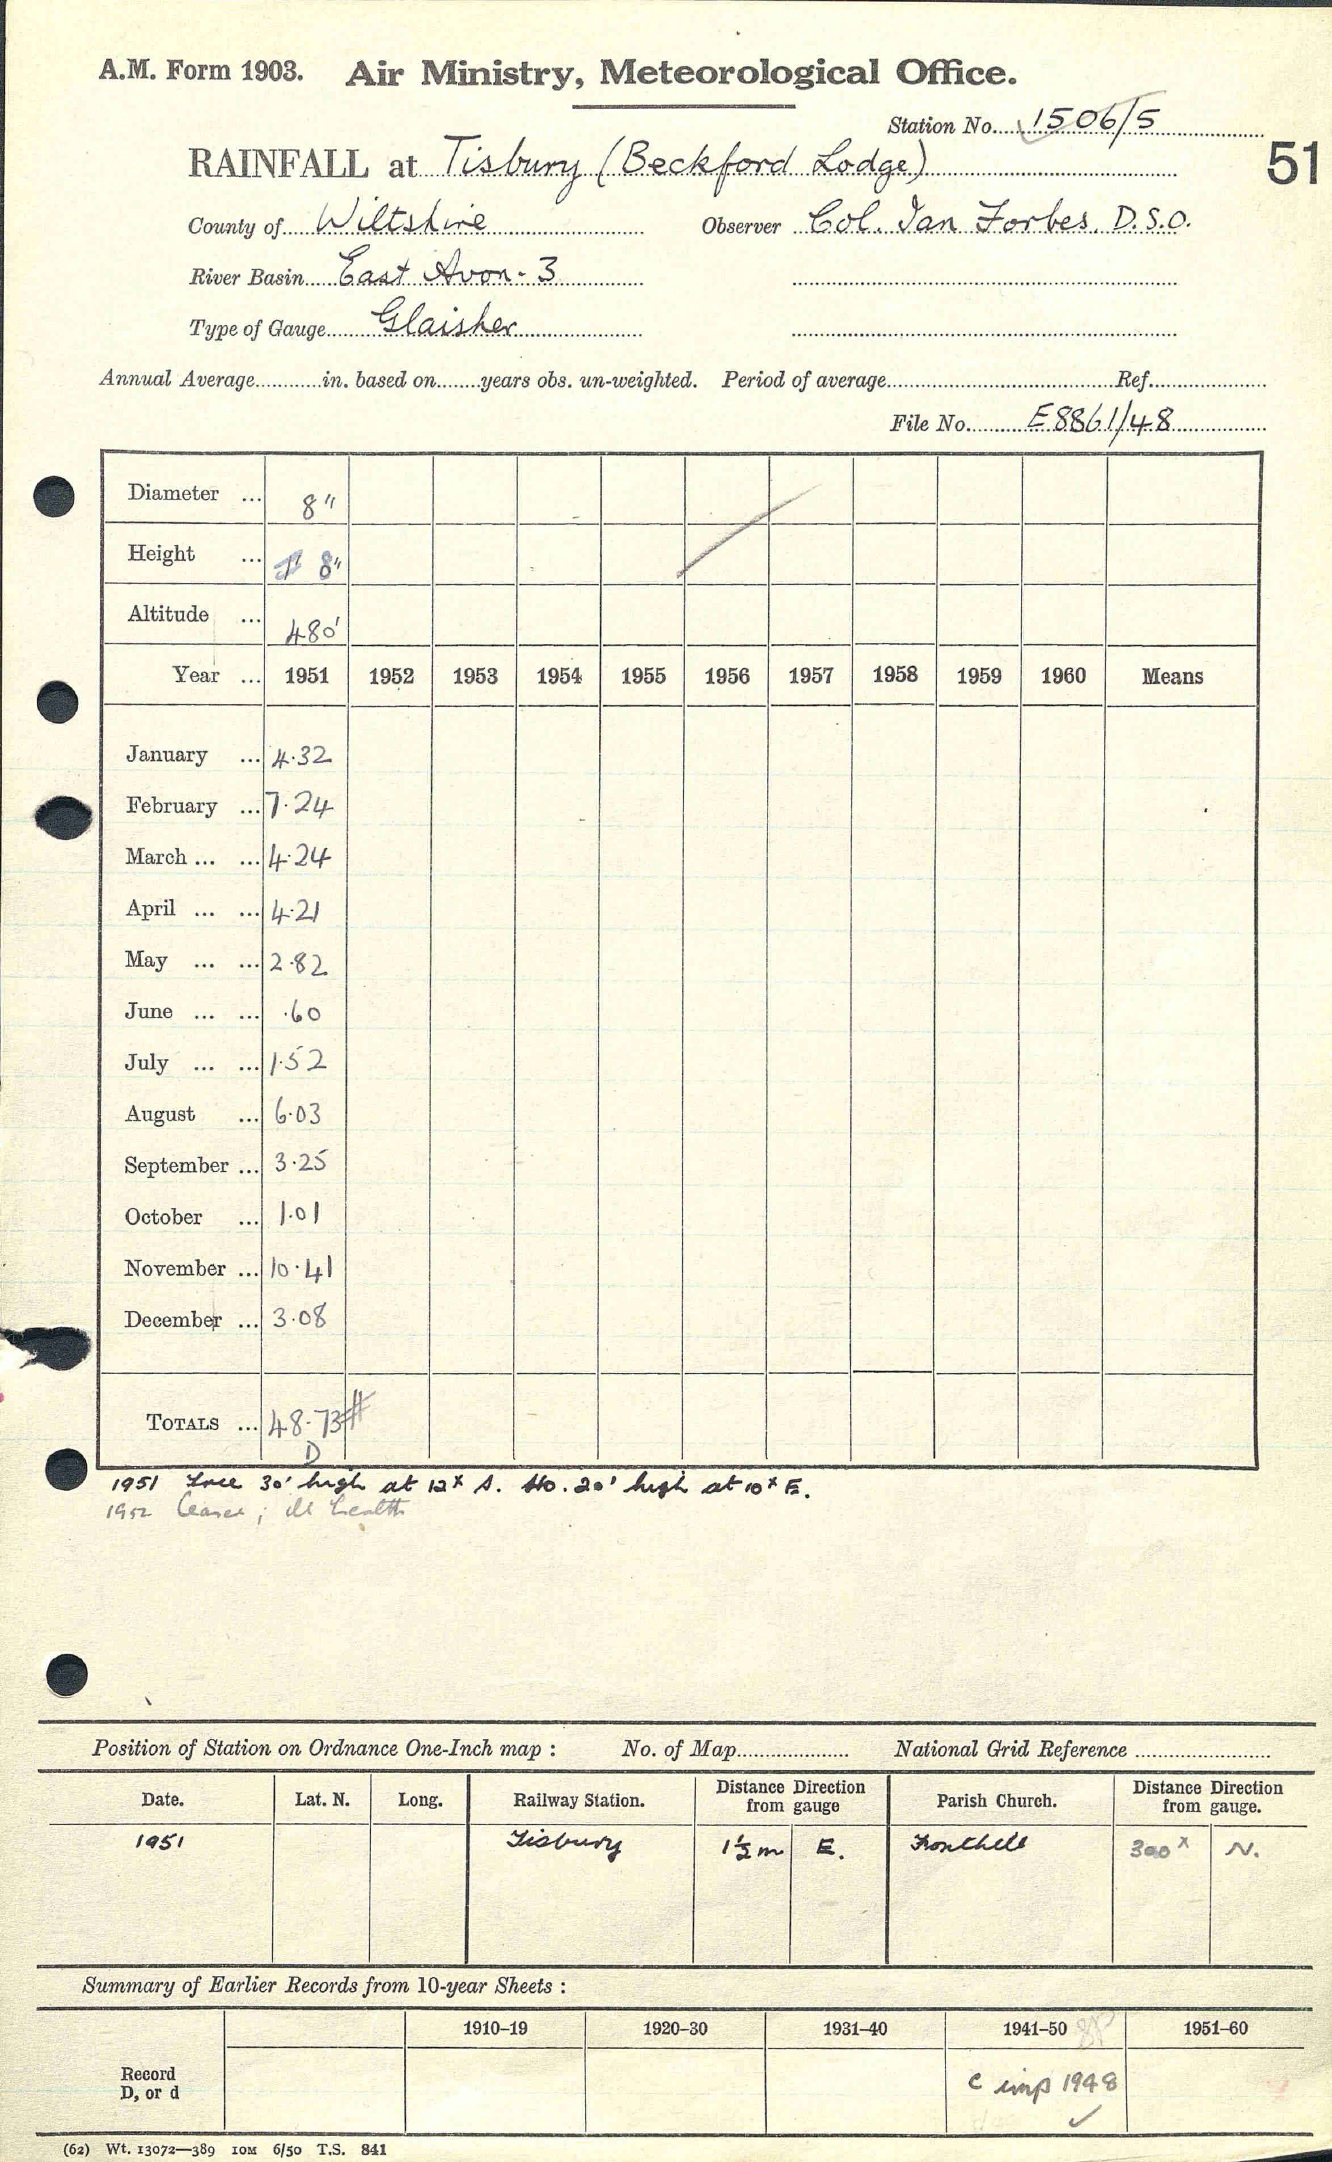 A.M. Form 1903. Air Ministry, Meteorological Office.
Station No. 1506/5
RAINFALL at Tisbury (Beckford Lodge)
51
County of Wiltshire Observer Col. Ian Forbes. D.S.O.
River Basin East Avon - 3
Type of Gauge Glaisher
Annual Average in. based on years obs. un-weighted. Period of average Ref.
File No. E8861/48
Diameter ... 8"
Height ... 8"
Altitude ... 480'
Year ... 1951 1952 1953 1954 1955 1956 1957 1958 1959 1960 Means
January ... 4.32
February ... 7.24
March ... ... 4.24
April ... ... 4.21
May ... ... 2.82
June ... ... .60
July ... ... 1.52
August ... 6.03
September ... 3.25
October ... 1.01
November ... 10.41
December ... 3.08
TOTALS ... 48.73#
D
1951 Tree 30' high at 12x S. 20' high at 10x E.
1952 ; ill health
Position of Station on Ordnance One-Inch map : No. of Map National Grid Reference
Date. Lat. N. Long. Railway Station. Distance Direction from gauge Parish Church. Distance Direction from gauge.
1951 Tisbury 1½m E. Fonthill 300x N.
Summary of Earlier Records from 10-year Sheets :
1910–19 1920–30 1931–40 1941–50 1951–60
Record
D, or d
c imp 1948 ✓
(62) Wt. 13072—389 10M 6/50 T.S. 841